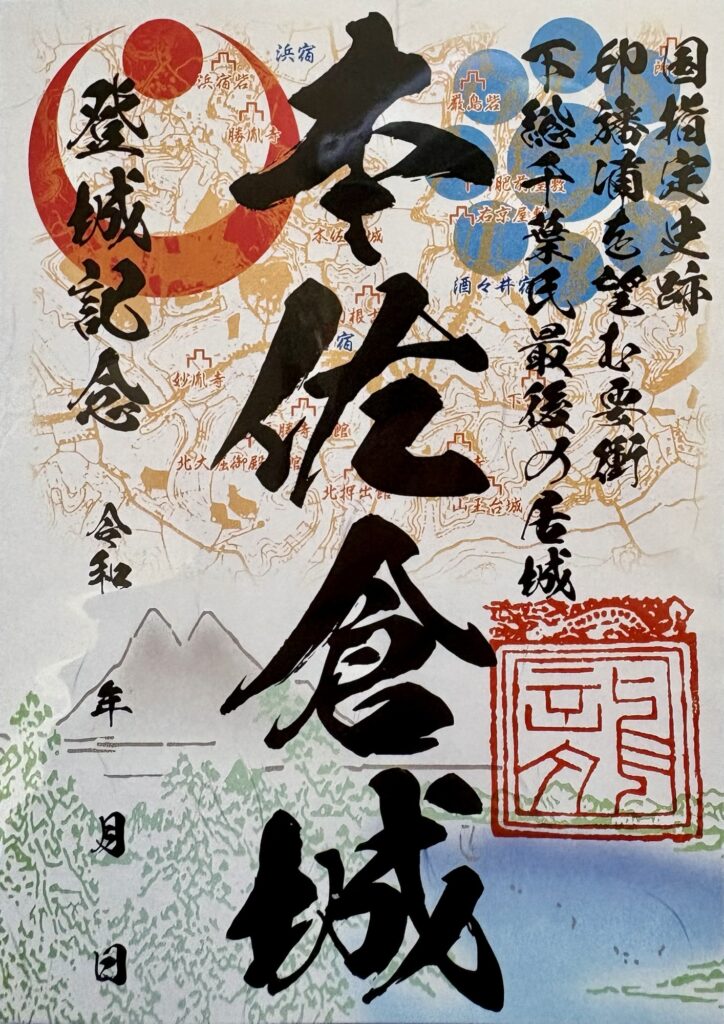 国指定史跡
印旛浦を望む要衝
下総千葉氏最後の居城
本佐倉城
登城記念
令和 年 月 日
浜宿
浜宿砦
勝胤寺
嚴島砦
本佐 城
酒々井宿
妙胤寺
北大堀御殿 館
勝寺 館
北押出館
山王台城
右京屋敷
肥前屋敷
根古
宿